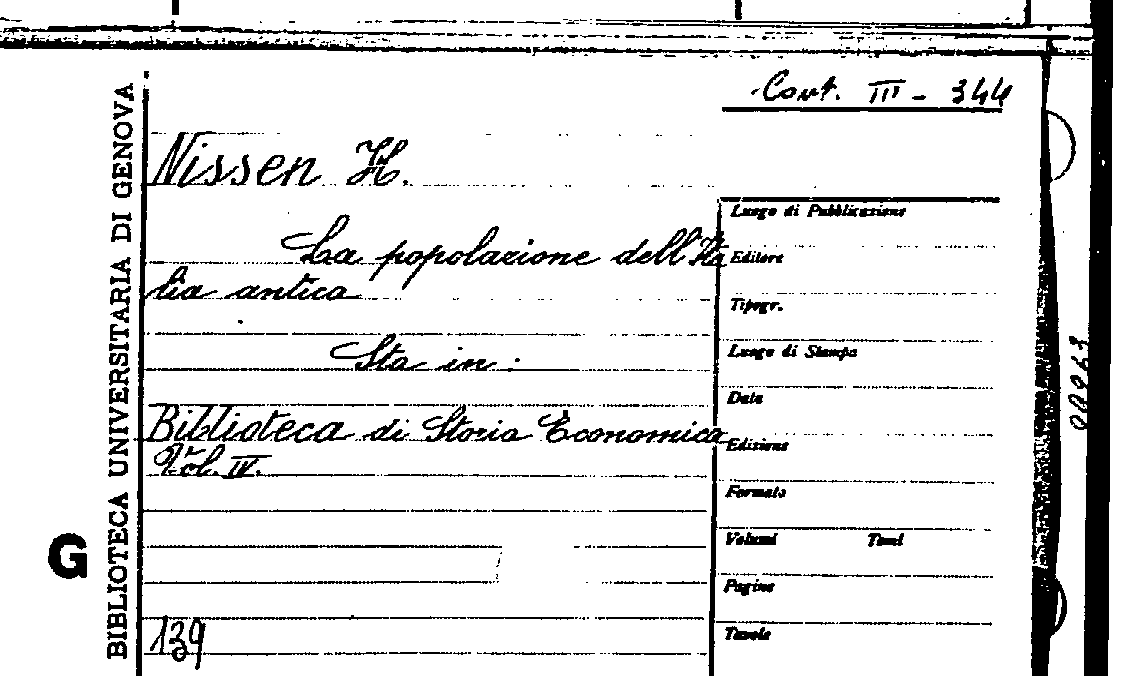 Cont. III - 344
Nissen H.
La popolazione dell'Ita
lia antica
Sta in:
Biblioteca di Storia Economica
Vol. IV.
139
Luogo di Pubblicazione
Editore
Tipogr.
Luogo di Stampa
Data
Edizione
Formato
Volumi Tomi
Pagine
Tavole
BIBLIOTECA UNIVERSITARIA DI GENOVA
G